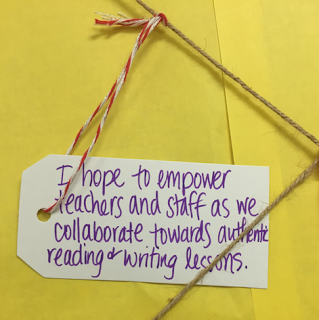 I hope to empower
teachers and staff as we
collaborate towards authentic
reading & writing lessons.